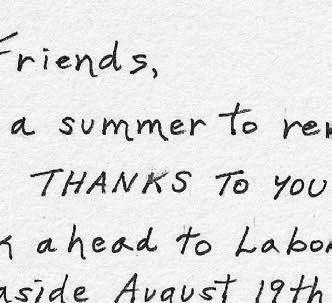 Friends,
a summer to
THANKS TO YOU
ahead to Labor
August 19th